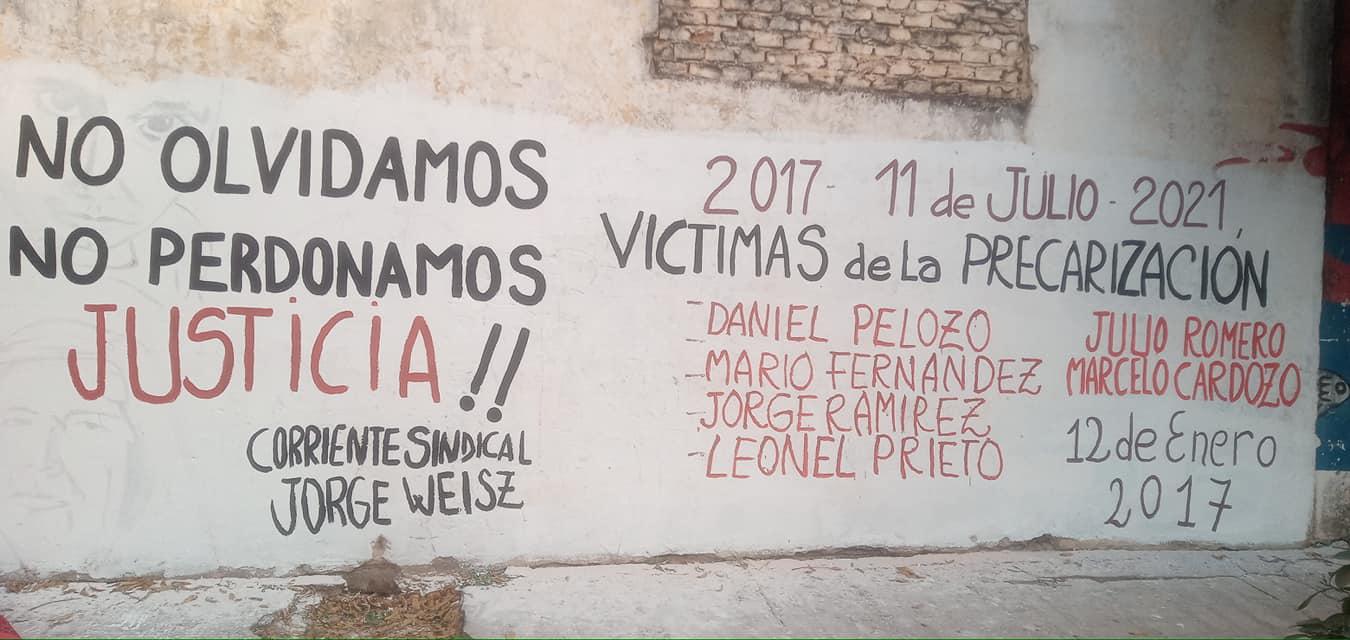 NO OLVIDAMOS
NO PERDONAMOS
JUSTICIA !!
CORRIENTE SINDICAL
JORGE WEISZ
2017- 11 de JULIO - 2021,
VICTIMAS de La PRECARIZACIÓN
- DANIEL PELOZO
- MARIO FERNANDEZ
- JORGE RAMIREZ
- LEONEL PRIETO
JULIO ROMERO
MARCELO CARDOZO
12 de Enero
2017